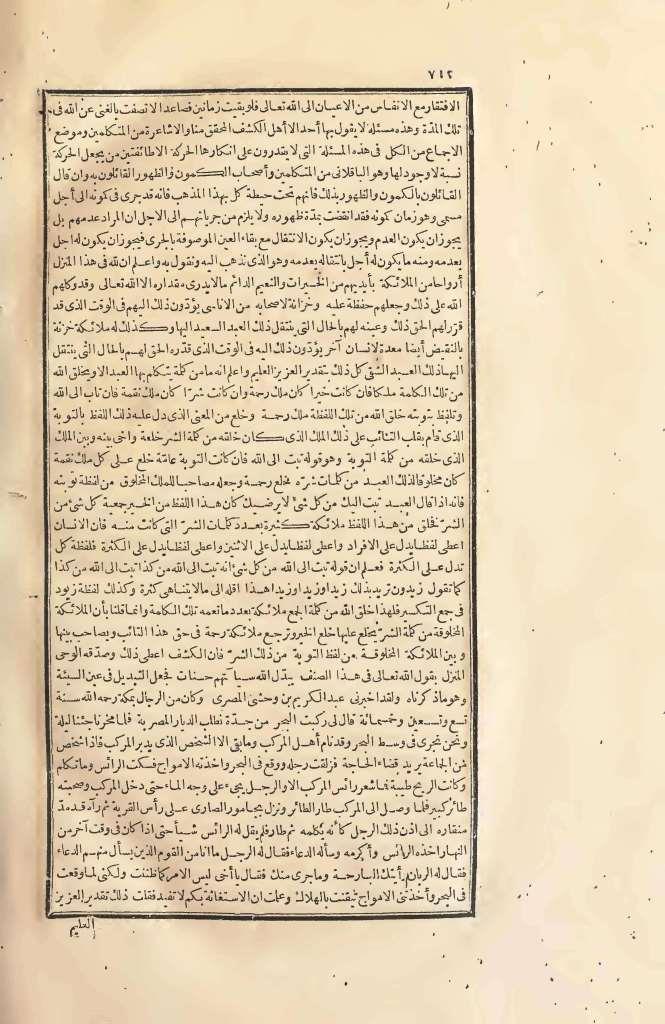 ٧١٢
الافتقار مع الانفاس من الاعيان الى الله تعالى فلو بقيت زمانين فصاعدا لاتصفت بالغنى عن الله فى
تلك المدّة وهذه مسئلة لا يقول بها أحد الا أهل الكشف المحقق منا والاشاعرة من المتكلمين وموضع
الاجماع من الكل فى هذه المسئلة التى لا يقدرون على انكارها الحركة الا طائفتين من يجعل الحركة
نسبة لا وجود لها وهو الباقلانى من المتكلمين وأصحاب الكمون والظهور القائلون به وان قال
القائلون بالكمون والظهور بذلك فانهم تحت حيطة كل بهذا المذهب فانه قد جرى فى كمونه الى أجل
مسمى وهو زمان كمونه فقد انقضت بمدّة ظهوره ولا يلزم من جريانهم الى الاجل ان المراد عدمهم بل
يجوز ان يكون العدم ويجوز ان يكون الانتقال مع بقاء العين الموصوفة بالجرى فيجوز ان يكون له اجل
بعدمه ومنه ما يكون له أجل بانتقاله بعدمه وهو الذى نذهب اليه ونقول به واعلم ان لله فى هذا المنزل
أرواحا من الملائكة بأيديهم من الخيرات والنعيم الدائم ما لا يدرى مقداره الا الله تعالى وقد وكلهم
الله على ذلك وجعلهم حفظة عليه وخزانة لاصحابه من الاناسى يؤدّون ذلك اليهم فى الوقت الذى قد
قرّر لهم الحق ذلك وعينه لهم بالحال التى ينتقل ذلك العبد السعيد اليها وكذلك له ملائكة خزنة
بالنقيض أيضا معدة لانسان آخر يؤدّون ذلك اليه فى الوقت الذى قدّره الحق لهم بالحال التى ينتقل
اليها ذلك العبد الشقى كل ذلك بتقدير العزيز العليم واعلم انه ما من كلمة يتكلم بها العبد الا ويخلق الله
من تلك الكلمة ملكا فان كانت خيرا كان ملك رحمة وان كانت شرّا كان ملك نقمة فان تاب الى الله
وتلفظ بتوبته خلق الله من تلك اللفظة ملك رحمة وخلع من المعنى الذى دل عليه ذلك اللفظ بالتوبة
الذى قام بقلب التائب على ذلك الملك الذى كان خلقه من كلمة الشر خلعة واخى بينه وبين الملك
الذى خلقه من كلمة التوبة وهو قوله تبت الى الله فان كانت التوبة عامّة خلع على كل ملك نقمة
كان مخلوقا لذلك العبد من كلمات شرّه بخلع رحمة وجعله مصاحبا للملك المخلوق من لفظة توبته
فانه اذا قال العبد تبت اليك من كل شئ لا يرضيك كان هذا اللفظ من الخير جمعية كل شئ من
الشرّ فخلق من هذا اللفظ ملائكة كثيرة بعدد كلمات الشرّ التى كانت منه فان الانسان
اعطى لفظا يدل على الافراد واعطى لفظا يدل على الاثنين واعطى لفظا يدل على الكثرة فلفظة كل
تدل على الكثرة فعلم ان قوله تبت الى الله من كل شئ انه تبت الى الله من كذا تبت الى الله من كذا
كما تقول زيدون تريد بذلك زيدا وزيدا وزيدا هذا اقله الى ما لا يتناهى كثرة وكذلك لفظة زيود
فى جمع التكسير فلهذا خلق الله من كلمة الجمع ملائكة بعدد ما تعمه تلك الكلمة وانما قلنا بأن الملائكة
المخلوقة من كلمة الشرّ يخلع عليها خلع الخير وترجع ملائكة رحمة فى حق هذا التائب ويصاحب بينها
وبين الملائكة المخلوقة من لفظ التوبة من ذلك الشرّ فان الكشف اعطى ذلك وصدّقه الوحى
المنزل بقول الله تعالى فى هذا الصنف يبدّل الله سيا تهم حسنات فجعل التبديل فى عين السيئة
وهو ما ذكرناه ولقد اخبرنى عبد الكريم بن وحشى المصرى وكان من الرجال بمكة رحمه الله سنة
تسع وتسعين وخمسمائة قال لى ركبت البحر من جدّة نطلب الديار المصرية فلما مخرنا جئنا ليلة
ونحن نجرى فى وسط البحر وقد نام أهل المركب وما بقى الا الشخص الذى يدبر المركب فاذا شخص
من الجماعة يريد قضاء الحاجة فزلقت رجله ووقع فى البحر واخذته الامواج فسكت الرائس وما تكلم
وكانت الريح طيبة فما شعر رائس المركب الا والرجل يجىء على وجه الماء حتى دخل المركب وصحبته
طائر كبير فلما وصل الى المركب طار الطائر ونزل بجامور الصارى على رأس القرية ثم رآه قد مدّ
منقاره الى اذن ذلك الرجل كأنه يكلمه ثم طار فلم يقل له الرائس شيأ حتى اذا كان فى وقت آخر من
النهار اخذه الرائس وأكرمه وسأله الدعاء فقال له الرجل ما انا من القوم الذين يسأل منهم الدعاء
فقال له الرائس رأيتك البارحة وما جرى منك فقال يا أخى ليس الامر كما ظننت ولكنى لما وقعت
فى البحر وأخذتنى الامواج تيقنت بالهلاك وعلمت ان الاستغاثة بكم لا تفيد فقلت ذلك تقدير العزيز
العليم